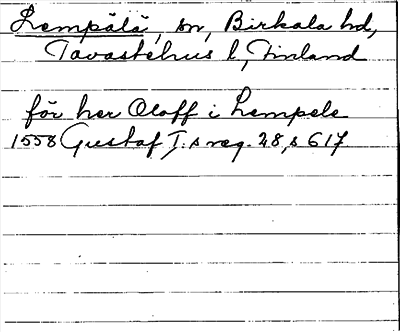 Lempälä, sn, Birkala hd,
Tavastehus l, Finland
för her Oloff i Lempele
1558 Gustaf I:s reg. 28, s 617